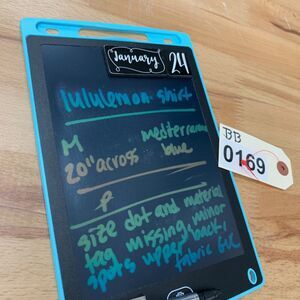 January 24
BB
0169
lululemon shirt
M mediterranean
20" across blue
P
size dot and material
tag missing, minor
spots upper back,
fabric GUC